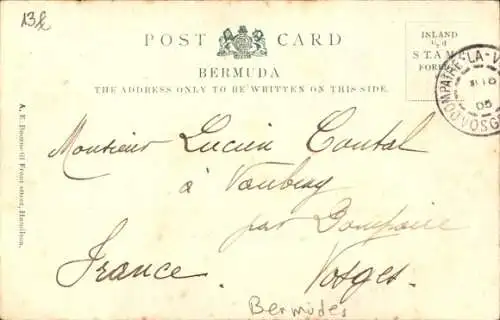 13k
POST CARD
BERMUDA
THE ADDRESS ONLY TO BE WRITTEN ON THIS SIDE.
INLAND
½d
STAMP
FOREIGN
DOMPAIRE-LA-V
18
05
VOSGES
A. E. Bourne 61 Front street, Hamilton.
Monsieur Lucien Coutal
à Vaubexy
par Dompaire
France. Vosges.
Bermudes